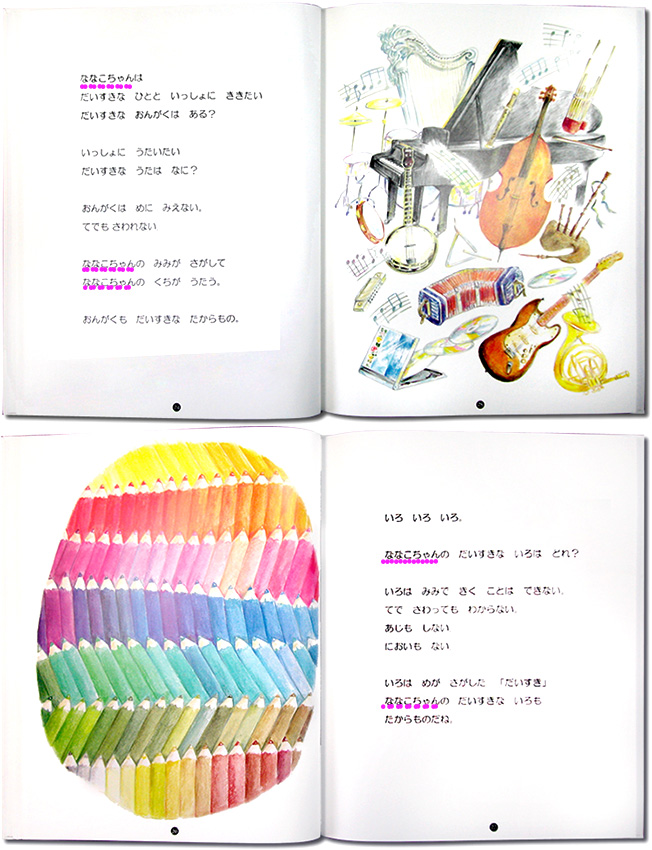 ななこちゃんは
だいすきな　ひとと　いっしょに　ききたい
だいすきな　おんがくは　ある？
いっしょに　うたいたい
だいすきな　うたは　なに？
おんがくは　めに　みえない。
てでも　さわれない
ななこちゃんの　みみが　さがして
ななこちゃんの　くちが　うたう。
おんがくも　だいすきな　たからもの。
いろ　いろ　いろ。
ななこちゃんの　だいすきな　いろは　どれ？
いろは　みみで　きく　ことは　できない。
てで　さわっても　わからない。
あじも　しない
においも　ない
いろは　めが　さがした　「だいすき」
ななこちゃんの　だいすきな　いろも
たからものだね。